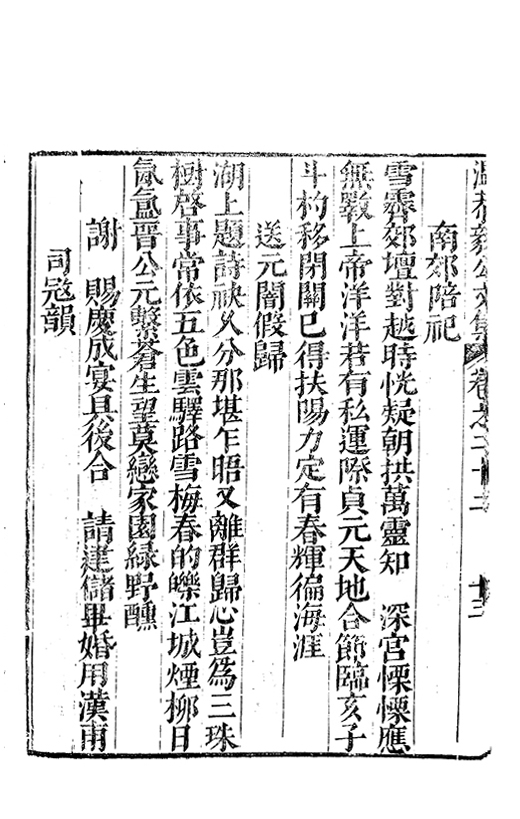 溫恭毅公文集 卷之二十二 十三
南郊陪祀
雪霽郊壇對越時恍疑朝拱萬靈知 深宮慄慄應
無斁上帝洋洋若有私運際貞元天地合節臨亥子
斗杓移閉關已得扶陽力定有春輝徧海涯
送元闇假歸
湖上題詩袂乆分那堪乍晤又離群歸心豈爲三珠
樹啓事常依五色雲驛路雪梅春的皪江城煙柳日
氤氳晉公元繫蒼生望莫戀家園緑野醺
謝 賜慶成宴具後合 請建儲畢婚用漢甫
司冦韻